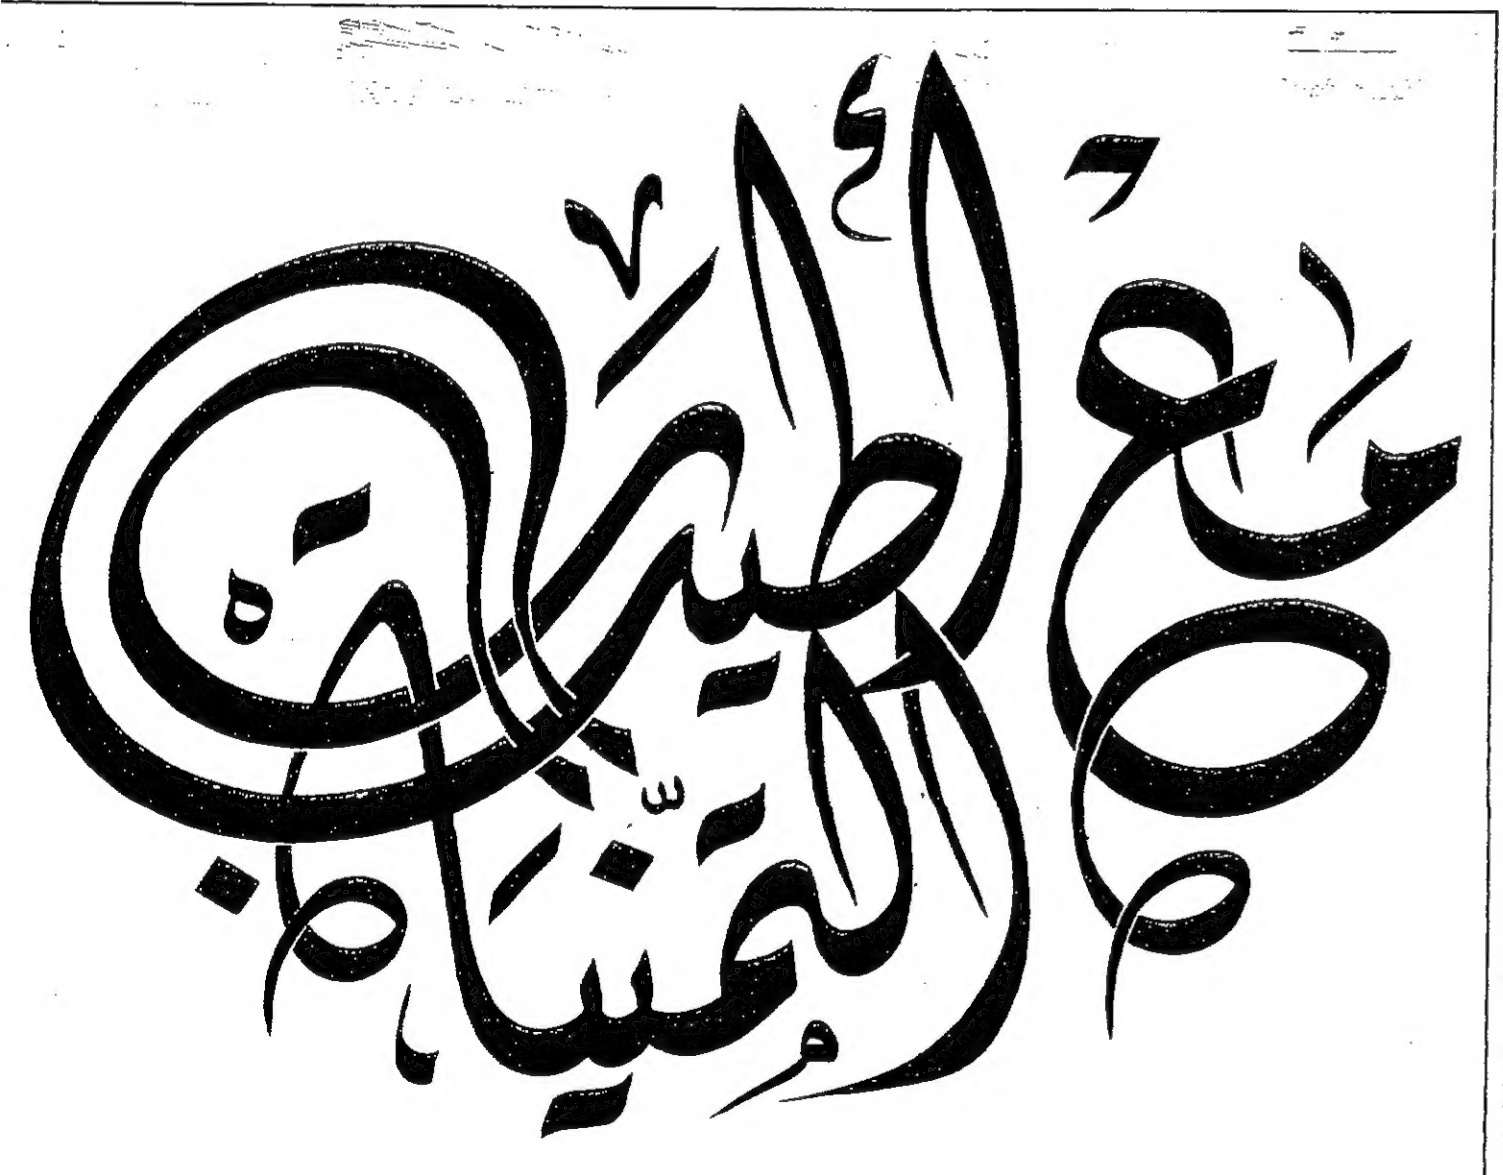 مع أطيب التمنيات